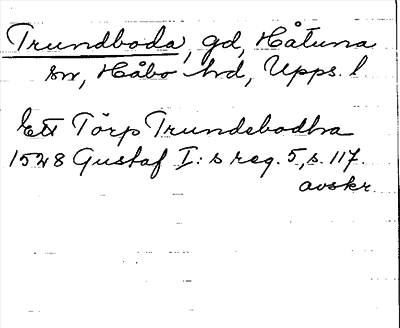 Trundboda, gd, Håtuna
sn, Håbo hd, Upps. l
Ett Torp Trundebodha
1528 Gustaf I:s reg. 5, s. 117.
avskr.